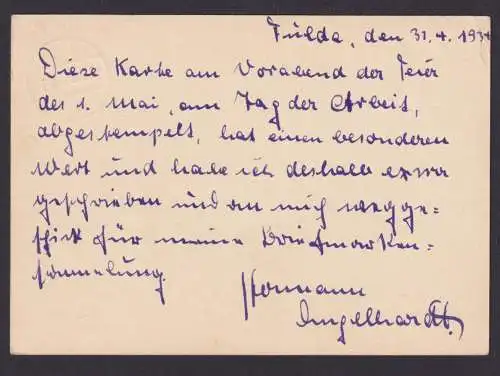 Fulda, den 31.4.1934
Diese Karte am Vorabend der Feier
des 1. Mai, am Tag der Arbeit,
abgestempelt, hat einen besonderen
Wert und habe ich deshalb extra
geschrieben und an mich wegge-
schickt für meine Briefmarken=
sammlung.
Hermann
Engelhardt.